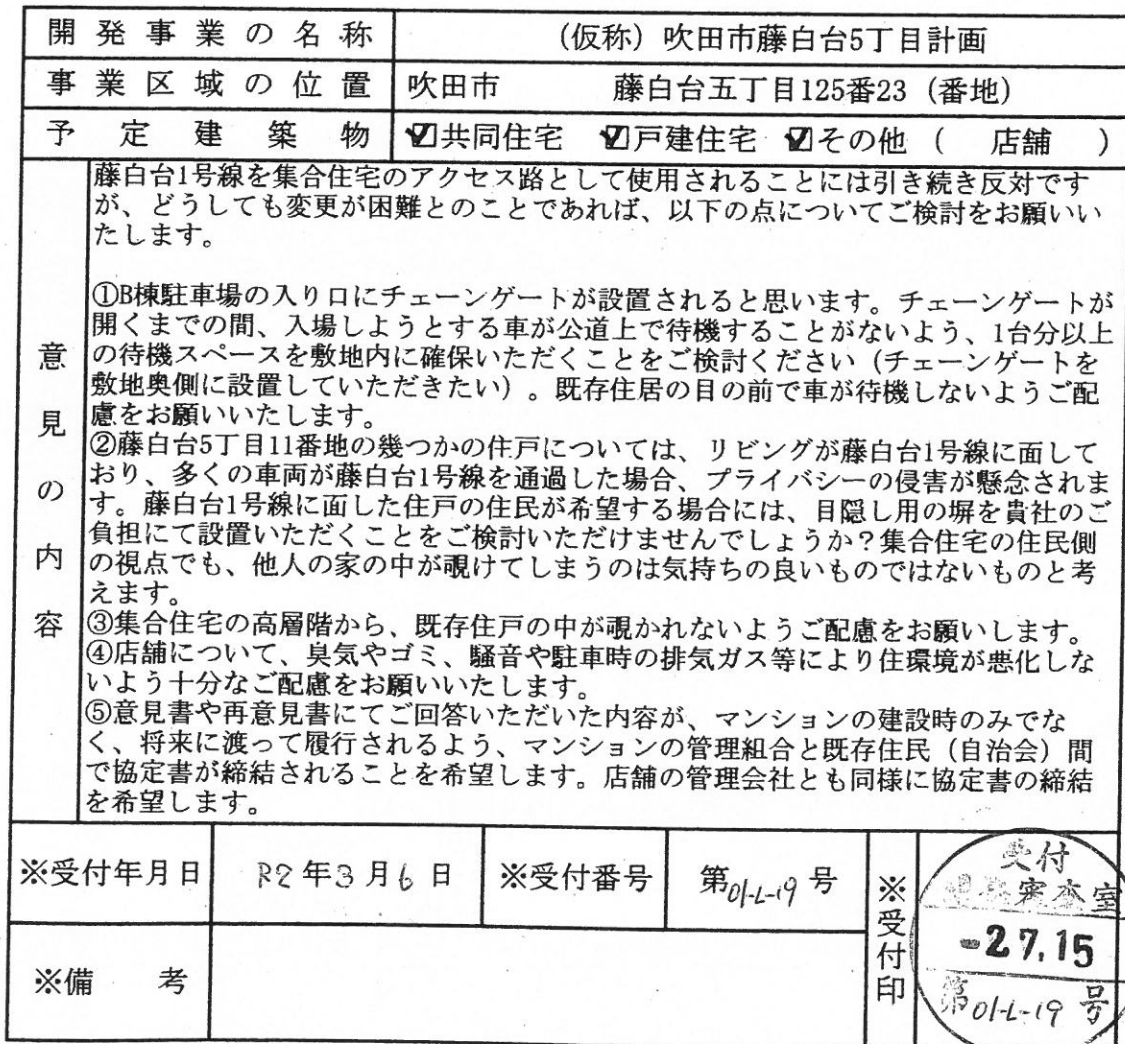 開発事業の名称 (仮称)吹田市藤白台5丁目計画
事業区域の位置 吹田市 藤白台五丁目125番23(番地)
予定建築物 ☑共同住宅 ☑戸建住宅 ☑その他( 店舗 )
意見の内容
藤白台1号線を集合住宅のアクセス路として使用されることには引き続き反対です
が、どうしても変更が困難とのことであれば、以下の点についてご検討をお願いい
たします。
①B棟駐車場の入り口にチェーンゲートが設置されると思います。チェーンゲートが
開くまでの間、入場しようとする車が公道上で待機することがないよう、1台分以上
の待機スペースを敷地内に確保いただくことをご検討ください(チェーンゲートを
敷地奥側に設置していただきたい)。既存住居の目の前で車が待機しないようご配
慮をお願いいたします。
②藤白台5丁目11番地の幾つかの住戸については、リビングが藤白台1号線に面して
おり、多くの車両が藤白台1号線を通過した場合、プライバシーの侵害が懸念されま
す。藤白台1号線に面した住戸の住民が希望する場合には、目隠し用の塀を貴社のご
負担にて設置いただくことをご検討いただけませんでしょうか？集合住宅の住民側
の視点でも、他人の家の中が覗けてしまうのは気持ちの良いものではないものと考
えます。
③集合住宅の高層階から、既存住戸の中が覗かれないようご配慮をお願いします。
④店舗について、臭気やゴミ、騒音や駐車時の排気ガス等により住環境が悪化しな
いよう十分なご配慮をお願いいたします。
⑤意見書や再意見書にてご回答いただいた内容が、マンションの建設時のみでな
く、将来に渡って履行されるよう、マンションの管理組合と既存住民(自治会)間
で協定書が締結されることを希望します。店舗の管理会社とも同様に協定書の締結
を希望します。
※受付年月日 R2年3月6日 ※受付番号 第01-L-19号
※受付印
受付
開発審査室
-2.7.15
第01-L-19号
※備考